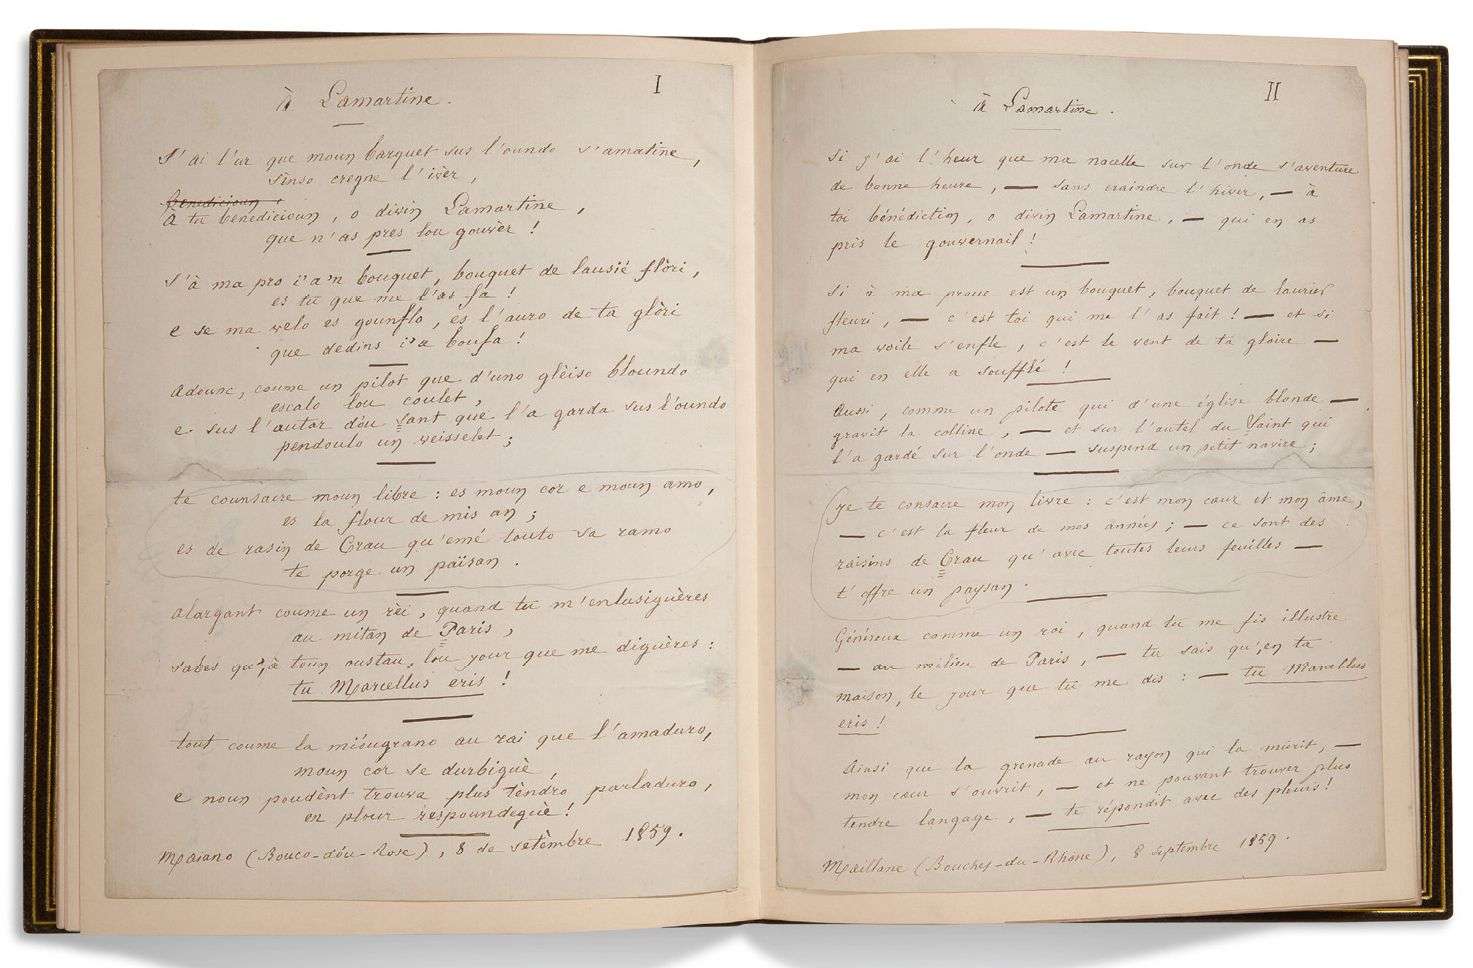 I
à Lamartine.
S'ai l'ur que moun barquet sus l'oundo s'amatine,
sènso cregne l'ivèr,
benedicioun
à tu benedicioun, o divin Lamartine,
que n'as pres lou gouvèr !
S'à ma pro i'a'n bouquet, bouquet de lausié flòri,
es tu que me l'as fa !
e se ma velo es gounflo, es l'auro de ta glòri
que dedins i'a boufa !
Adounc, coume un pilot que d'uno glèiso bloundo
escalo lou coulet,
e sus l'autar dóu sant que l'a garda sus l'oundo
pendoulo un veisselet ;
te counsacre moun libre : es moun cor e moun amo,
es la flour de mis an ;
es de rasin de Crau qu'emé touto sa ramo
te porge un païsan.
Alargant coume un rèi, quand tu m'enlusiguères
au mitan de Paris,
sabes qu', à toun oustau, lou jour que me diguères :
tu Marcellus eris !
tout coume la miéugrano au rai que l'amaduro,
moun cor se durbiguè,
e noun poudènt trouva plus tèndro parladuro,
en plour respoundeguè !
Maiano (Bouco-dóu-Rose), 8 de setèmbre 1859.
II
à Lamartine.
Si j'ai l'heur que ma nacelle sur l'onde s'aventure
de bonne heure, — sans craindre l'hiver, — à
toi bénédiction, o divin Lamartine, — qui en as
pris le gouvernail !
Si à ma proue est un bouquet, bouquet de laurier
fleuri, — c'est toi qui me l'as fait ! — et si
ma voile s'enfle, c'est le vent de ta gloire —
qui en elle a soufflé !
Aussi, comme un pilote qui d'une église blonde —
gravit la colline, — et sur l'autel du Saint qui
l'a gardé sur l'onde — suspend un petit navire ;
je te consacre mon livre : c'est mon cœur et mon âme,
— c'est la fleur de mes années ; — ce sont des
raisins de Crau qu'avec toutes leurs feuilles —
t'offre un paysan.
Généreux comme un roi, quand tu me fis illustre
— au milieu de Paris, — tu sais qu', en ta
maison, le jour que tu me dis : — tu Marcellus
eris !
Ainsi que la grenade au rayon qui la mûrit, —
mon cœur s'ouvrit, — et ne pouvant trouver plus
tendre langage, — te répondit avec des pleurs !
Maillane (Bouches-du-Rhône), 8 septembre 1859.